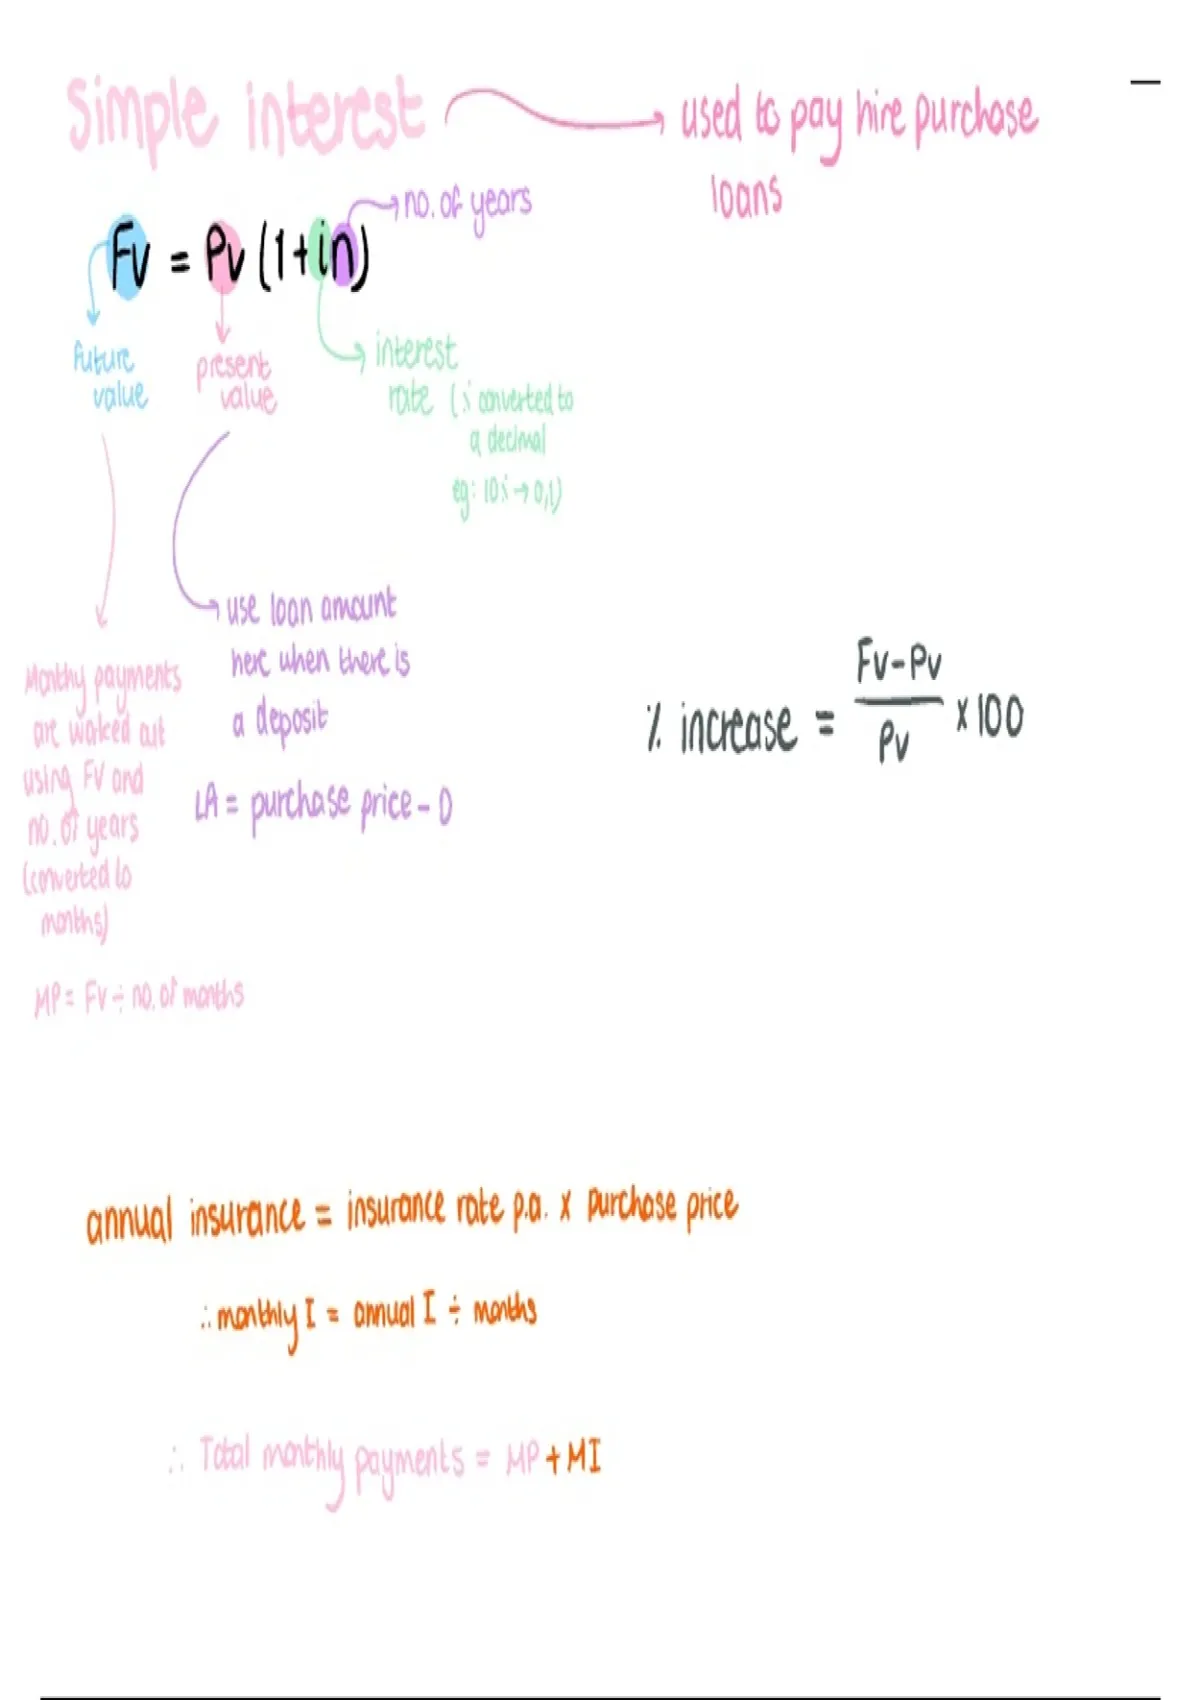 Simple interest → used to pay hire purchase
loans
→ no. of years
Fv = Pv (1+in)
future
value
present
value
interest
rate (% converted to
a decimal
eg: 10% → 0,1)
use loan amount
here when there is
a deposit
LA = purchase price - D
Monthy payments
are worked out
using FV and
no. of years
(converted to
months)
MP = Fv ÷ no. of months
% increase = Fv - Pv
Pv
x 100
annual insurance = insurance rate p.a. x purchase price
∴ monthly I = annual I ÷ months
∴ Total monthly payments = MP + MI